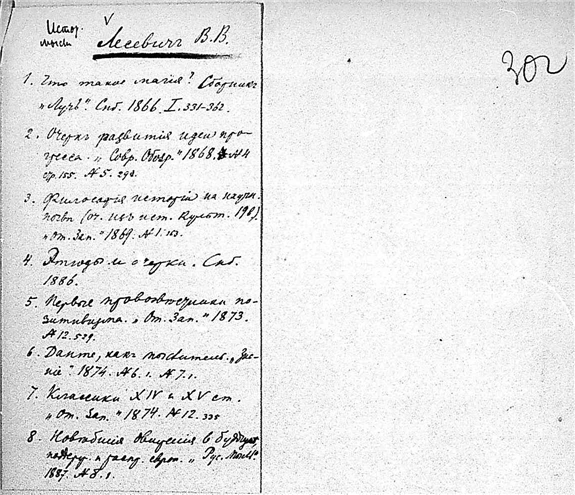 Истор.
мысли
Лесевичъ В.В.
302
1. Что такое магія? Сборникъ
„Лучъ“. Спб. 1866. I. 331-362.
2. Очеркъ развитія идеи про-
гресса. „Совр. Обозр.“ 1868. №4
стр. 155. №5. 292.
3. Философія исторіи на научн.
почвѣ (оч. изъ ист. культ. 19в.)
„От. Зап.“ 1869. №1. 163.
4. Этюды и очерки. Спб.
1886.
5. Первые провозвѣстники по-
зитивизма. „От. Зап.“ 1873.
№12.
6. Данте, какъ мыслитель. „Зна-
ніе“ 1874. №6. 1. №7. 1.
7. Классики XIV и XV ст.
„От. Зап.“ 1874. №12. 335
8. Новѣйшія движенія в
европ. „Рус. Мысль“.
1887. №8. 1.